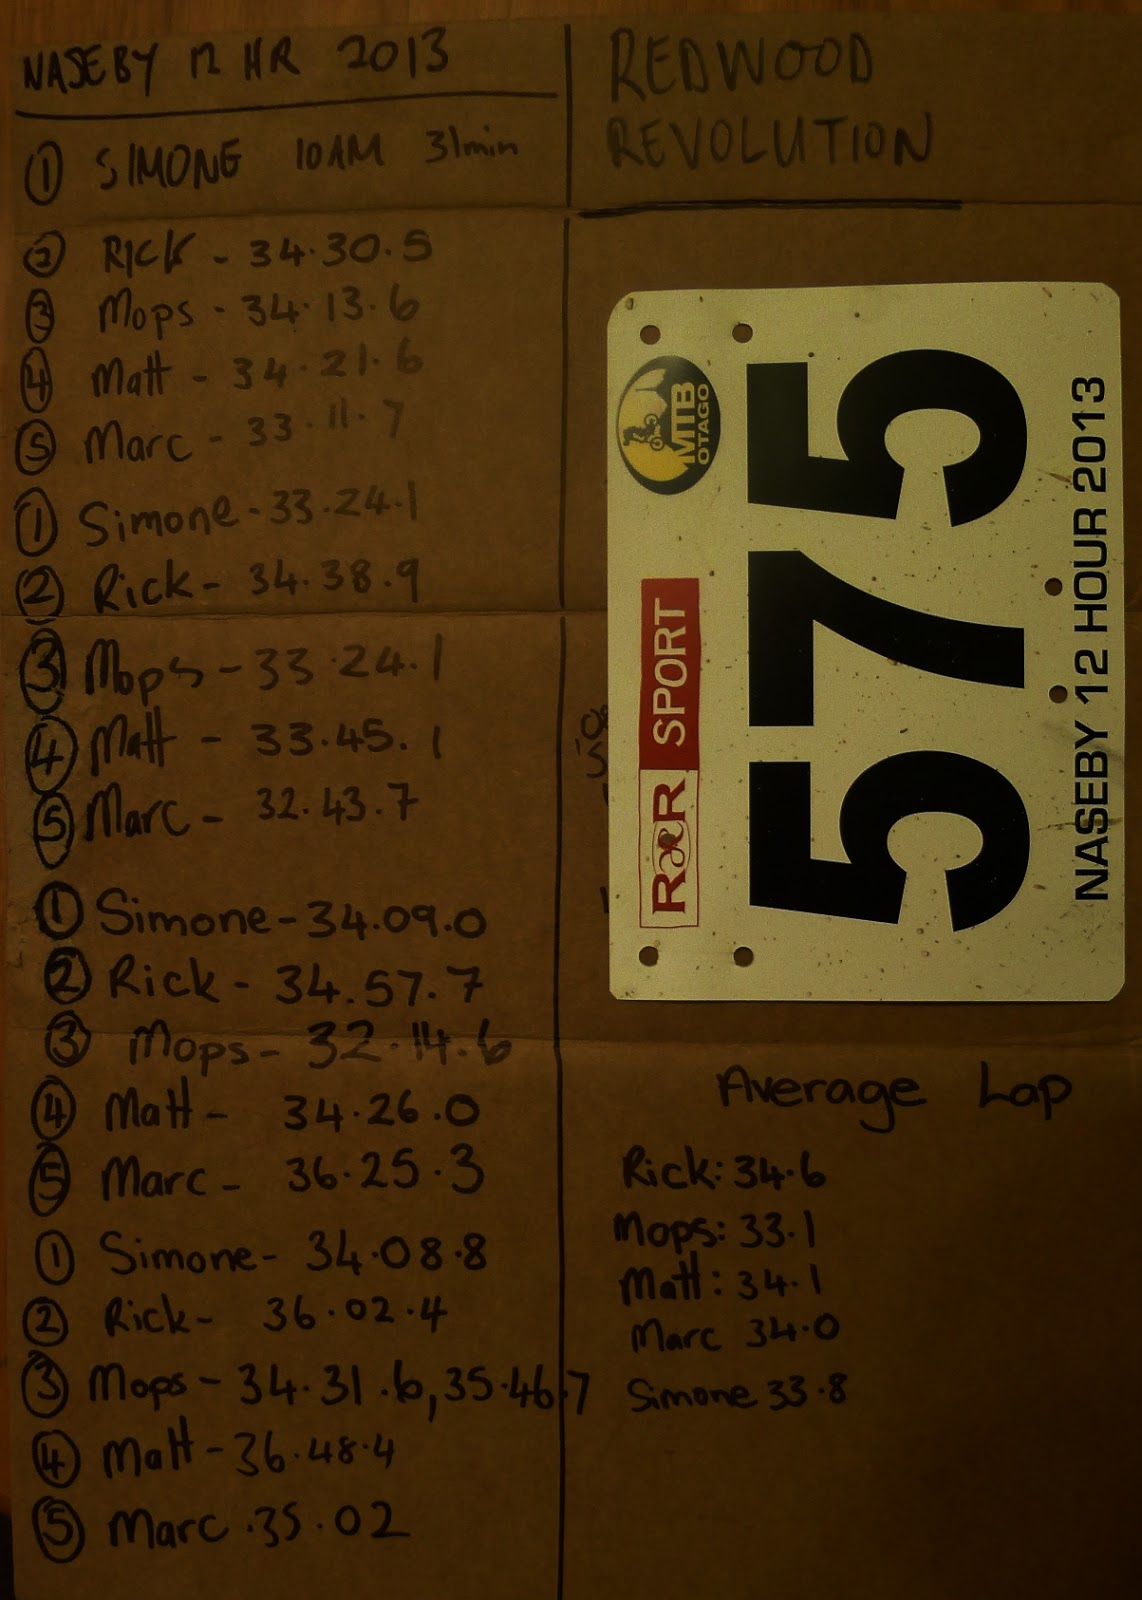 NASEBY 12 HR 2013
① SIMONE 10AM 31min
② Rick - 34.30.5
③ Mops - 34.13.6
④ Matt - 34.21.6
⑤ Marc - 33.11.7
① Simone - 33.24.1
② Rick - 34.38.9
③ Mops - 33.24.1
④ Matt - 33.45.1
⑤ Marc - 32.43.7
① Simone - 34.09.0
② Rick - 34.57.7
③ Mops - 32.14.6
④ Matt - 34.26.0
⑤ Marc - 36.25.3
① Simone - 34.08.8
② Rick - 36.02.4
③ Mops - 34.31.6, 35.46.7
④ Matt - 36.48.4
⑤ Marc .35.02
REDWOOD
REVOLUTION
MTB
OTAGO
R&R SPORT
575
NASEBY 12 HOUR 2013
Average Lap
Rick: 34.6
Mops: 33.1
Matt: 34.1
Marc 34.0
Simone 33.8